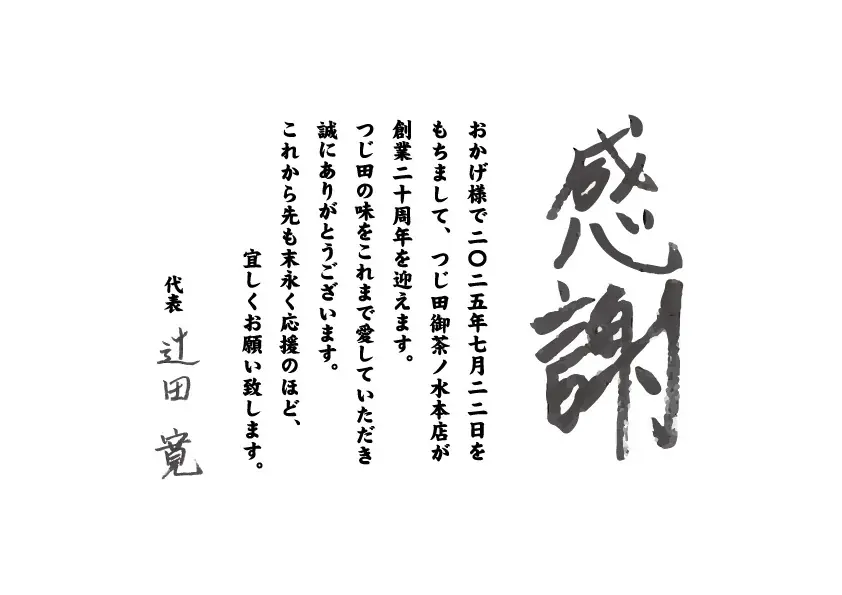 感謝
おかげ様で二〇二五年七月二二日を
もちまして、つじ田御茶ノ水本店が
創業二十周年を迎えます。
つじ田の味をこれまで愛していただき
誠にありがとうございます。
これから先も末永く応援のほど、
宜しくお願い致します。
代表 辻田 寛